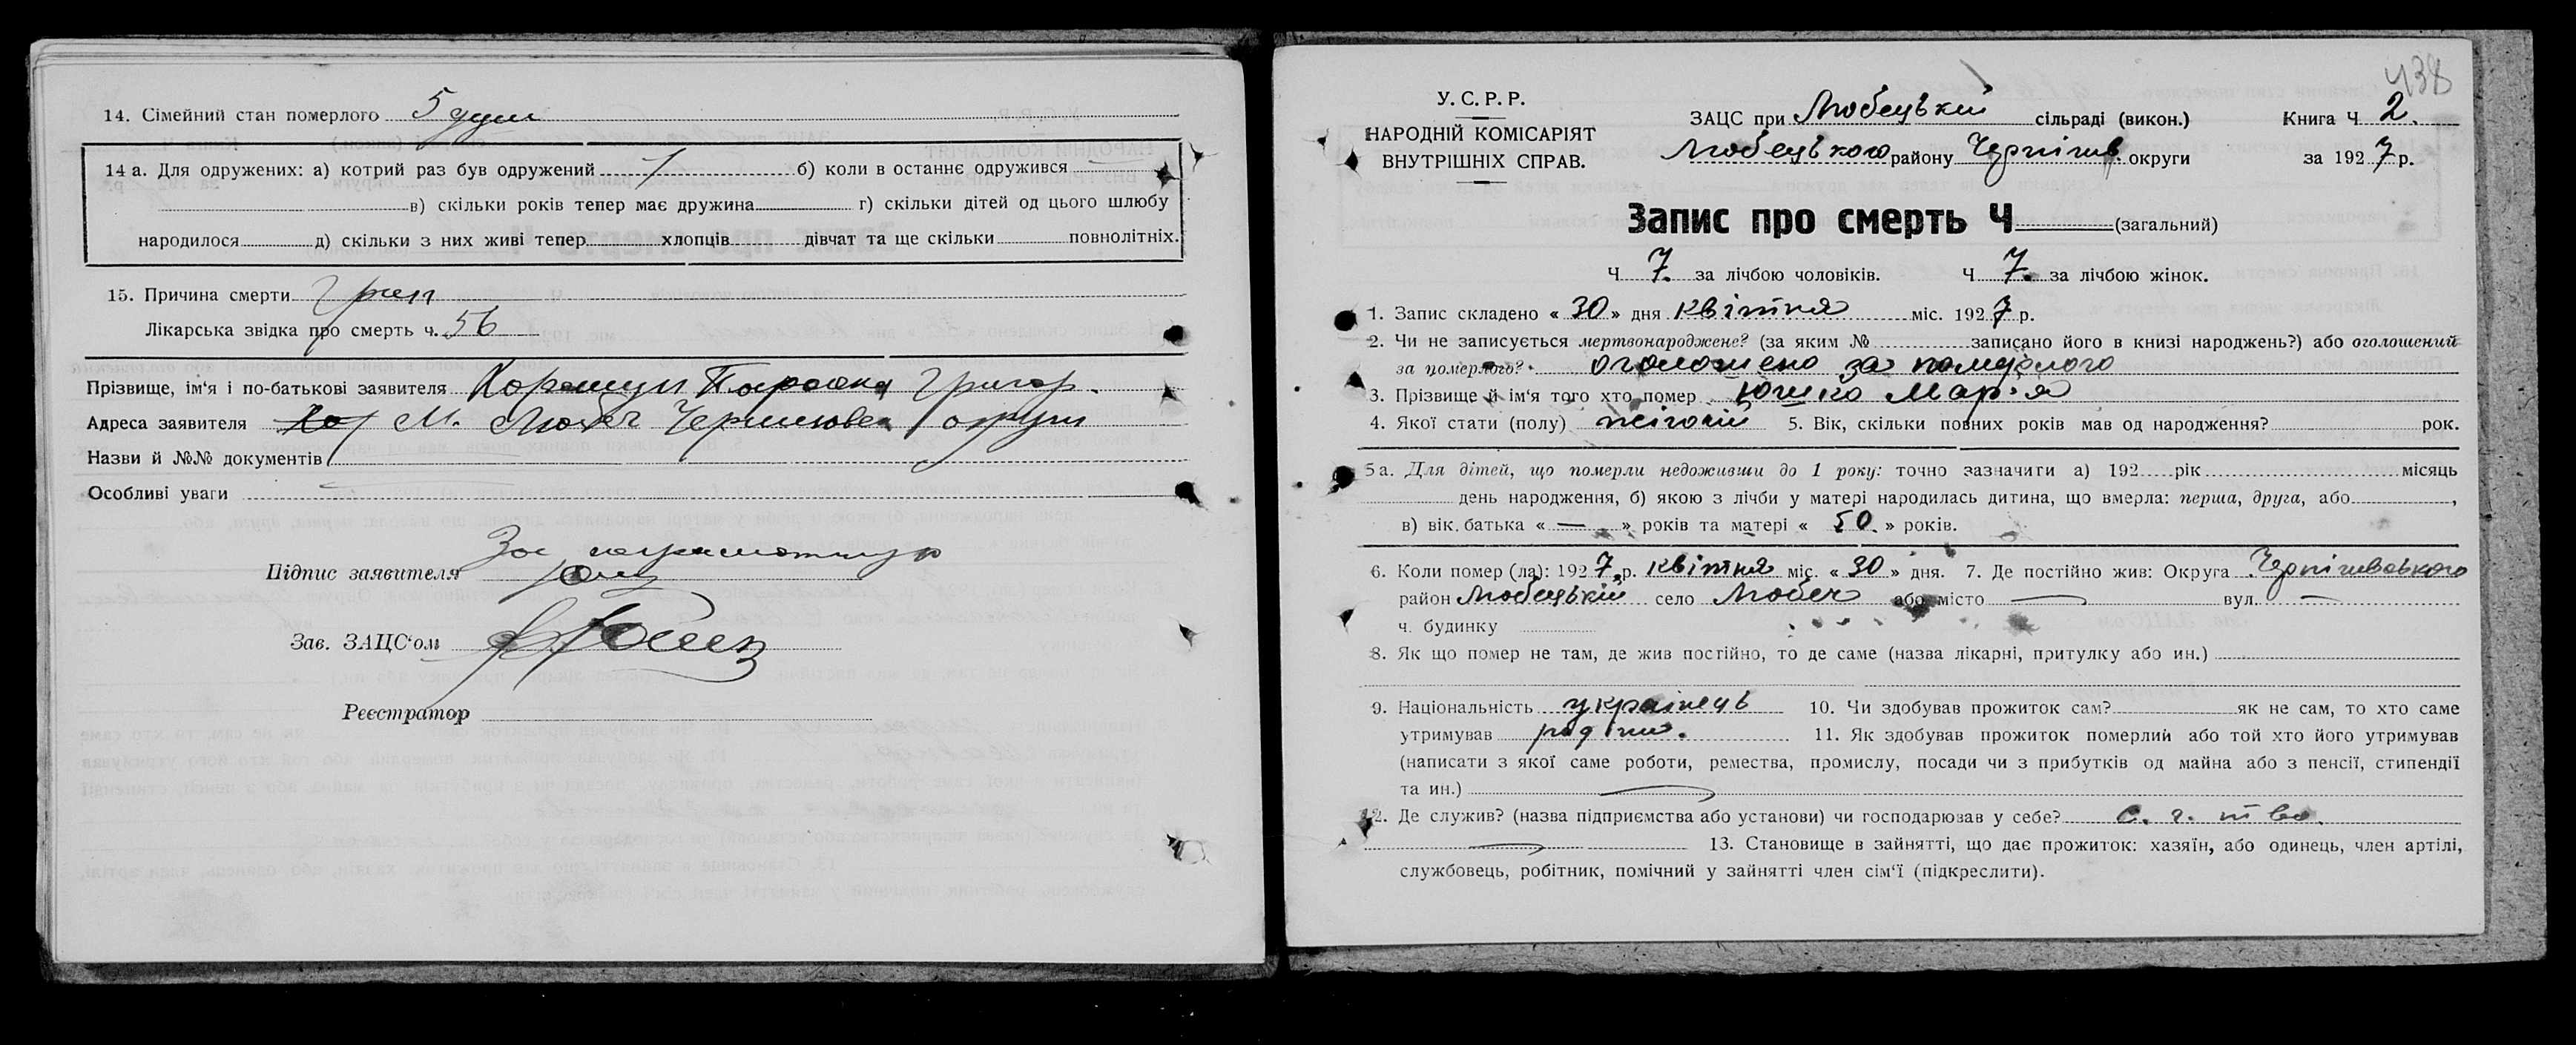 14. Сімейний стан померлого 5 душ
14 а. Для одружених: а) котрий раз був одружений 1 б) коли в останнє одружився
в) скільки років тепер має дружина г) скільки дітей од цього шлюбу
народилося д) скільки з них живі тепер хлопців дівчат та ще скільки повнолітніх.
15. Причина смерти Грип
Лікарська звідка про смерть ч. 56
Прізвище, ім'я і по-батькові заявителя Параска Григор.
Адреса заявителя М. Любеч округи
Назви й №№ документів
Особливі уваги
За неграмотную
Підпис заявителя
Зав. ЗАЦС'ом
Реєстратор
438
У. С. Р. Р.
НАРОДНІЙ КОМІСАРІЯТ
ВНУТРІШНІХ СПРАВ.
ЗАЦС при Любецькій сільраді (викон.) Книга Ч 2.
Любецького району Чернігів. округи за 1927 р.
Запис про смерть Ч (загальний)
Ч 7 за лічбою чоловіків. Ч 7. за лічбою жінок.
1. Запис складено « 30 » дня квітня міс. 1927 р.
2. Чи не записується мертвонароджене? (за яким № записано його в книзі народжень?) або оголошений
за померлого? оголошено за помєрлого
3. Прізвище й ім'я того хто помер Юшко Мар'я
4. Якої стати (полу) жіночій 5. Вік, скільки повних років мав од народження? рок.
5 а. Для дітей, що померли недоживши до 1 року: точно зазначити а) 192 рік місяць
день народження, б) якою з лічби у матері народилась дитина, що вмерла: перша, друга, або ,
в) вік. батька « — » років та матері « 50 » років.
6. Коли помер (ла): 1927 р. квітня міс. « 30 » дня. 7. Де постійно жив: Округа Чернігивського
район Любецькій село Любеч або місто — вул. —
ч. будинку
8. Як що помер не там, де жив постійно, то де саме (назва лікарні, притулку або ин.)
9. Національність українець 10. Чи здобував прожиток сам? як не сам, то хто саме
утримував родина. 11. Як здобував прожиток померлий або той хто його утримував
(написати з якої саме роботи, ремества, промислу, посади чи з прибутків од майна або з пенсії, стипендії
та ин.)
12. Де служив? (назва підприємства або установи) чи господарював у себе? с. г. тво.
13. Становище в зайнятті, що дає прожиток: хазяїн, або одинець, член артілі,
службовець, робітник, помічний у зайнятті член сім'ї (підкреслити).